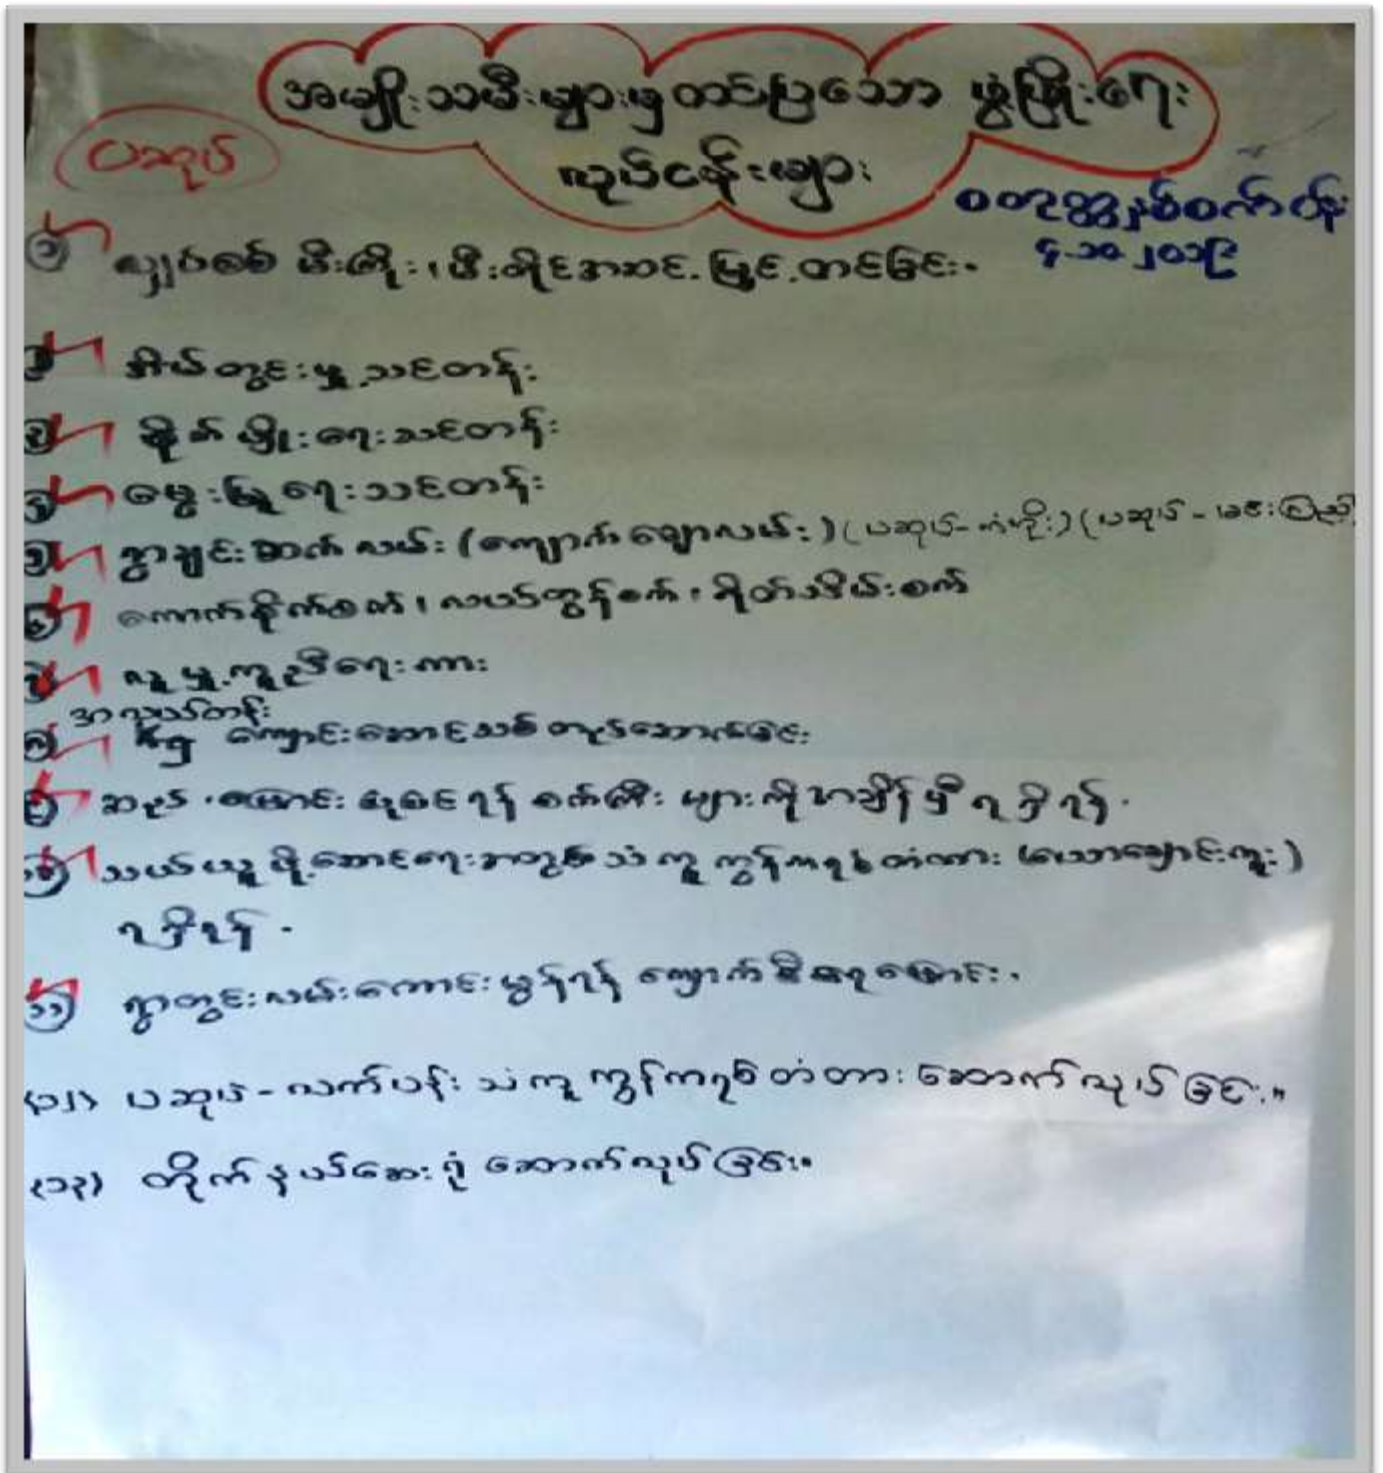 အမျိုးသမီးများမှတင်ပြသော ဖွံ့ဖြိုးရေး
လုပ်ငန်းများ
ပဆုပ်
စတုတ္ထနှစ်စက်ဝန်း
၄.၁၀.၂၀၁၉
၁ လျှပ်စစ် မီးကြိုး၊ မီးတိုင်အဆင့်မြှင့်တင်ခြင်း.
၂ အိမ်တွင်းမှု့သင်တန်း
၃ စိုက်ပျိုးရေးသင်တန်း
၄ မွေးမြူရေးသင်တန်း
၅ ရွာချင်းဆက်လမ်း (ကျောက်ချောလမ်း) (ပဆုပ်-ကံကိုး) (ပဆုပ်-မင်းပြည်)
၆ ကောက်စိုက်စက်၊ လယ်ထွန်စက်၊ ရိတ်သိမ်းစက်
၇ လူမှု့ကူညီရေးကား
အလယ်တန်း
၈ ကျောင်းဆောင်သစ်တည်ဆောက်ခြင်း
၉ ဆည် မြောင်း စက်ကြီး များကိုအချိန်မှီရရှိရန်.
၁၀ သယ်ယူပို့ဆောင်ရေးအတွက် သံကူကွန်ကရစ်တံတား (ချောင်းကူး)
ရရှိရန်.
၁၁ ရွာတွင်းလမ်းကောင်းမွန်ရန် ကျောက်စီရေမြောင်း.
(၁၂) ပဆုပ်-လက်ပန်း သံကူကွန်ကရစ်တံတား ဆောက်လုပ်ခြင်း.။
(၁၃) တိုက်နယ်ဆေးရုံ ဆောက်လုပ်ခြင်း။